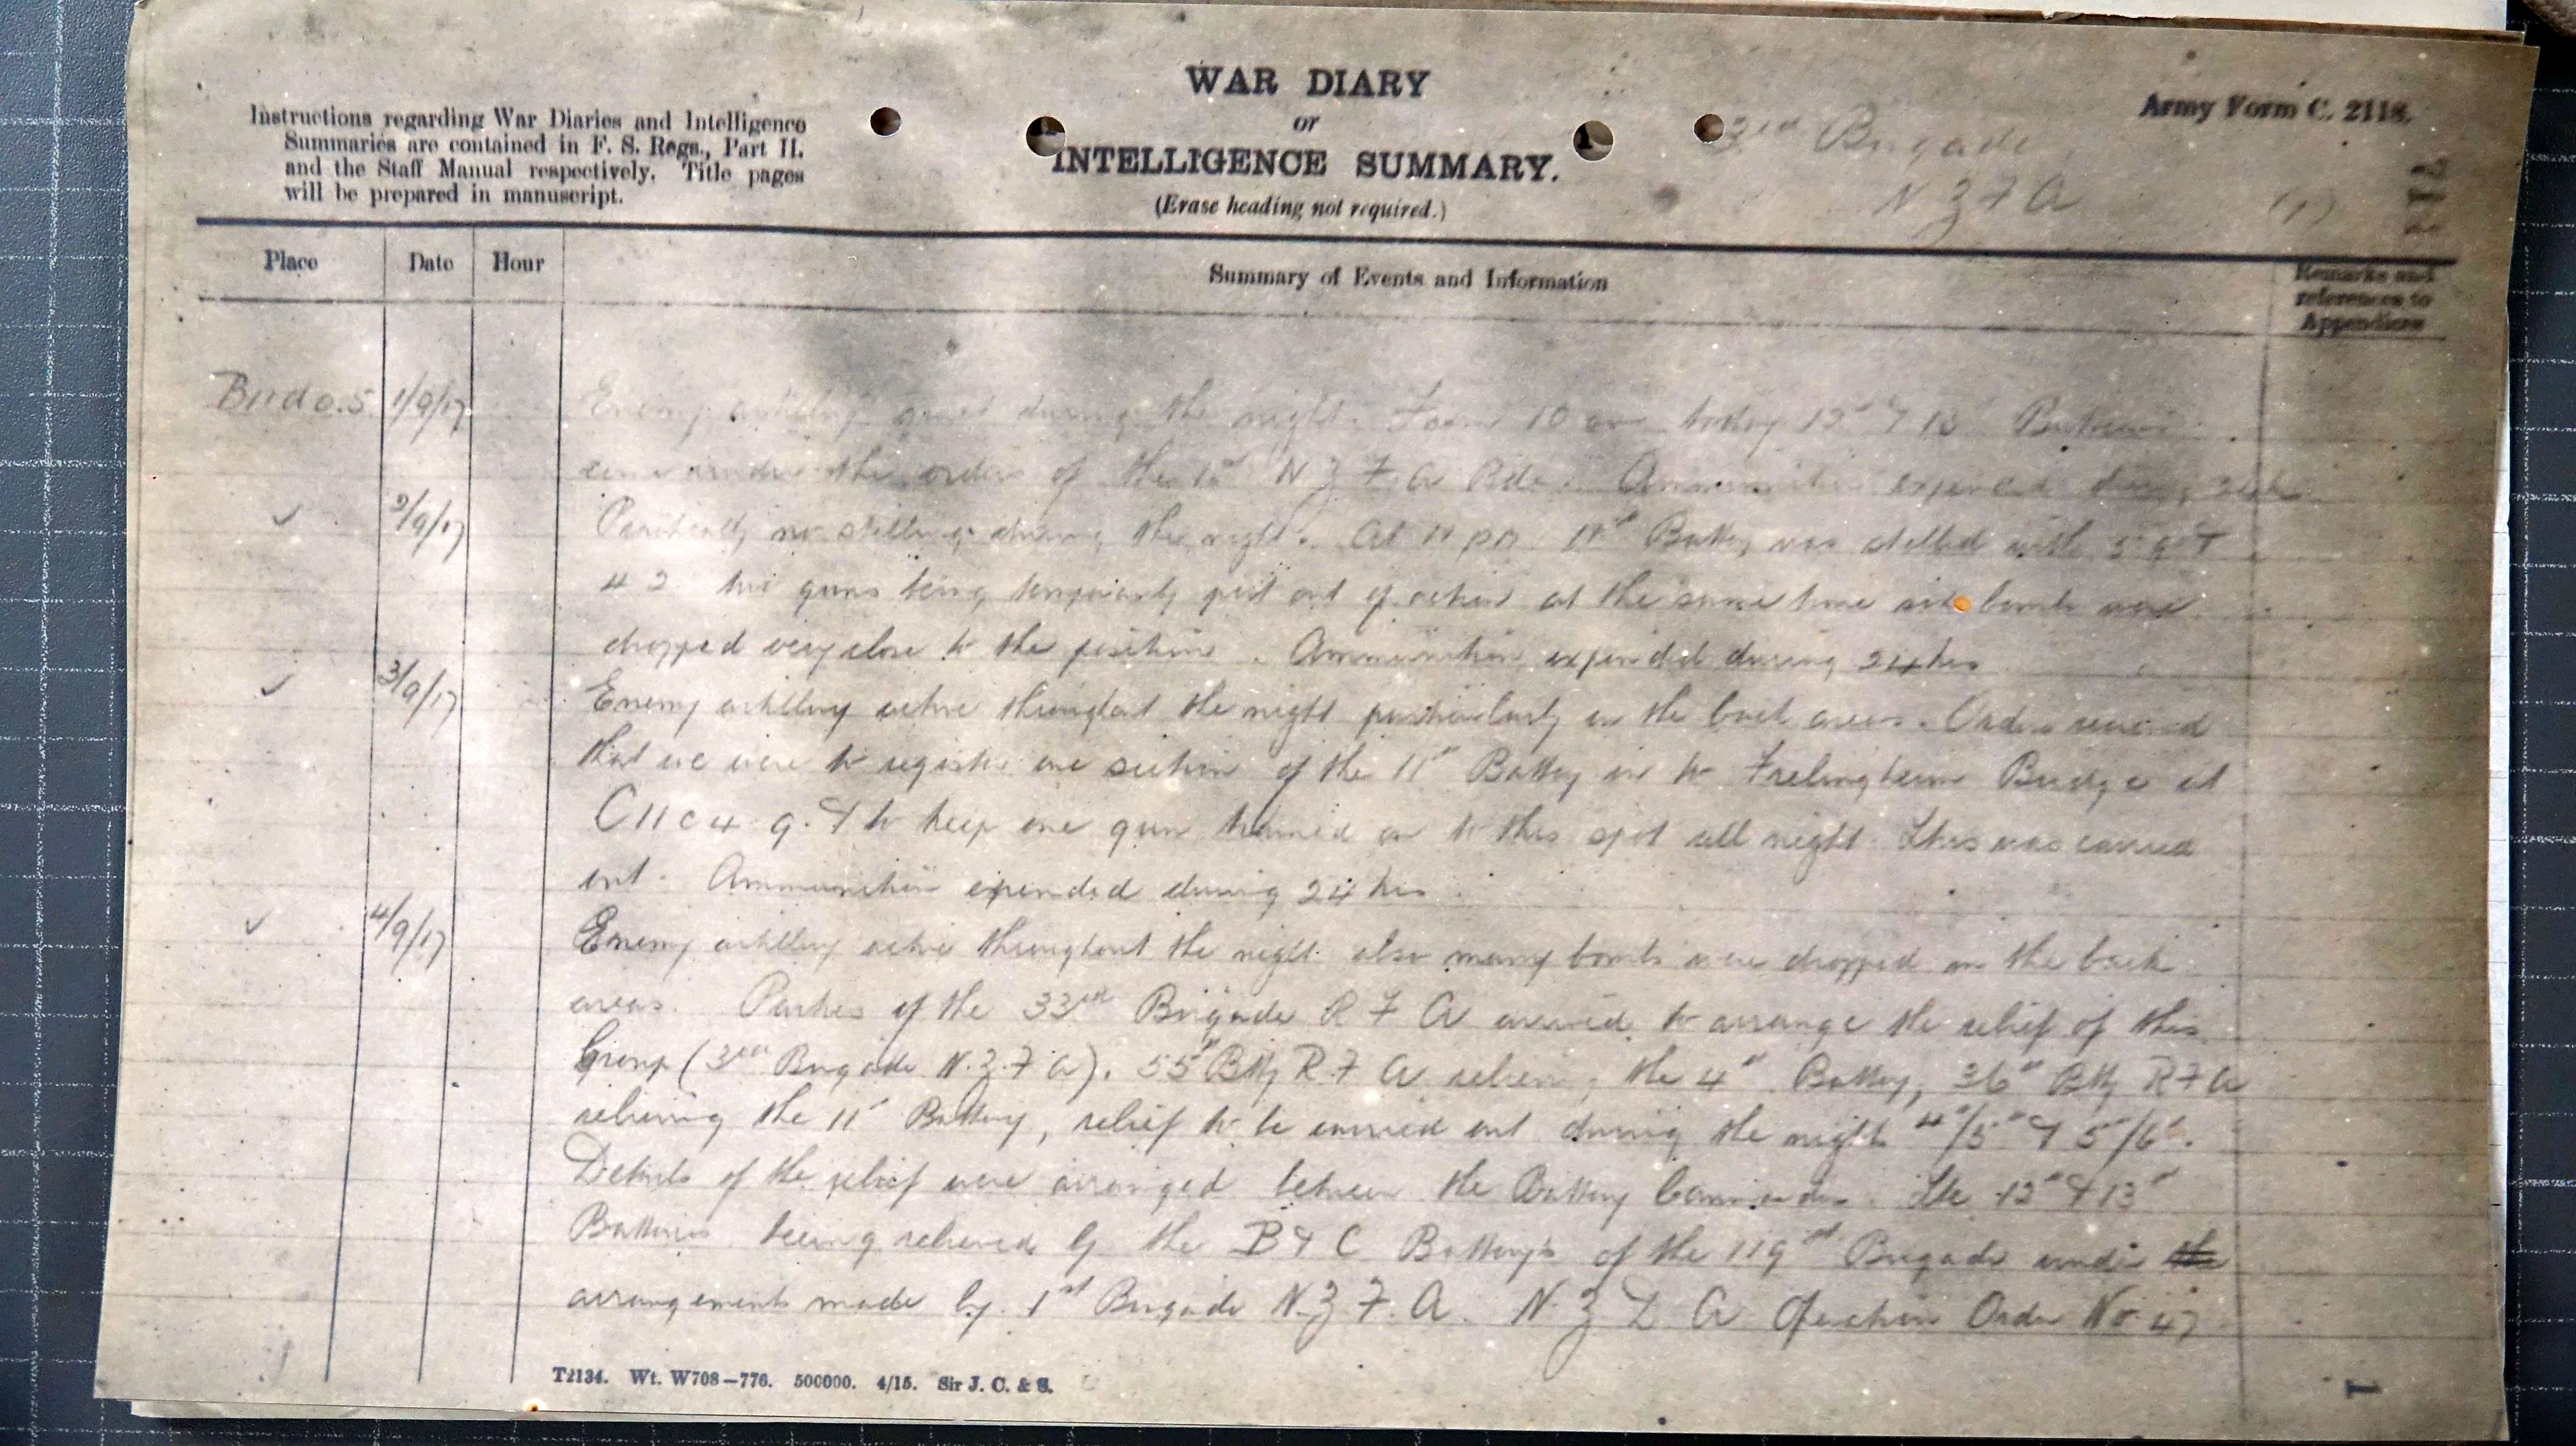 WAR DIARY
or
INTELLIGENCE SUMMARY.
(Erase heading not required.)
Instructions regarding War Diaries and Intelligence
Summaries are contained in F. S. Regs., Part II.
and the Staff Manual respectively. Title pages
will be prepared in manuscript.
Army Form C. 2118.
3rd Brigade
N Z F A
(1)
Place Date Hour Summary of Events and Information Remarks and
references to
Appendices
1/9/17 Enemy artillery quiet during the night. From 10 am today 12th & 13 Batteries
come under the orders of the 1st N Z F A Bde. Ammunition expended during 24 hrs
✓ 2/9/17 Practically no shelling during the night. At pm 11th Battery was shelled with 5.9" &
4 2 two guns being temporarily put out of action at the same time bombs were
dropped very close to the position. Ammunition expended during 24 hrs
✓ 3/9/17 Enemy artillery active throughout the night particularly on the back areas. Orders received
that we were to register one section of the 11th Battery on to Frelinghem Bridge at
C11c4.9. & to keep one gun trained on to this spot all night. This was carried
out. Ammunition expended during 24 hrs.
✓ 4/9/17 Enemy artillery active throughout the night also many bombs were dropped on the back
areas. Parties of the 33rd Brigade R F A arrived to arrange the relief of this
Group (3rd Brigade N.Z.F A). 55th Bty R F A relieving the 4th Battery, 36th Bty R F A
relieving the 11th Battery, relief to be carried out during the night 4th/5th & 5th/6th.
Details of the relief were arranged between the Battery Commanders. The 12th & 13th
Batteries being relieved by the B & C Battery's of the 119th Brigade under the
arrangements made by 1st Brigade N.Z.F.A. N. Z D A Operation Order No 47
T2134. Wt. W708—776. 500000. 4/15. Sir J. C. & S.
1